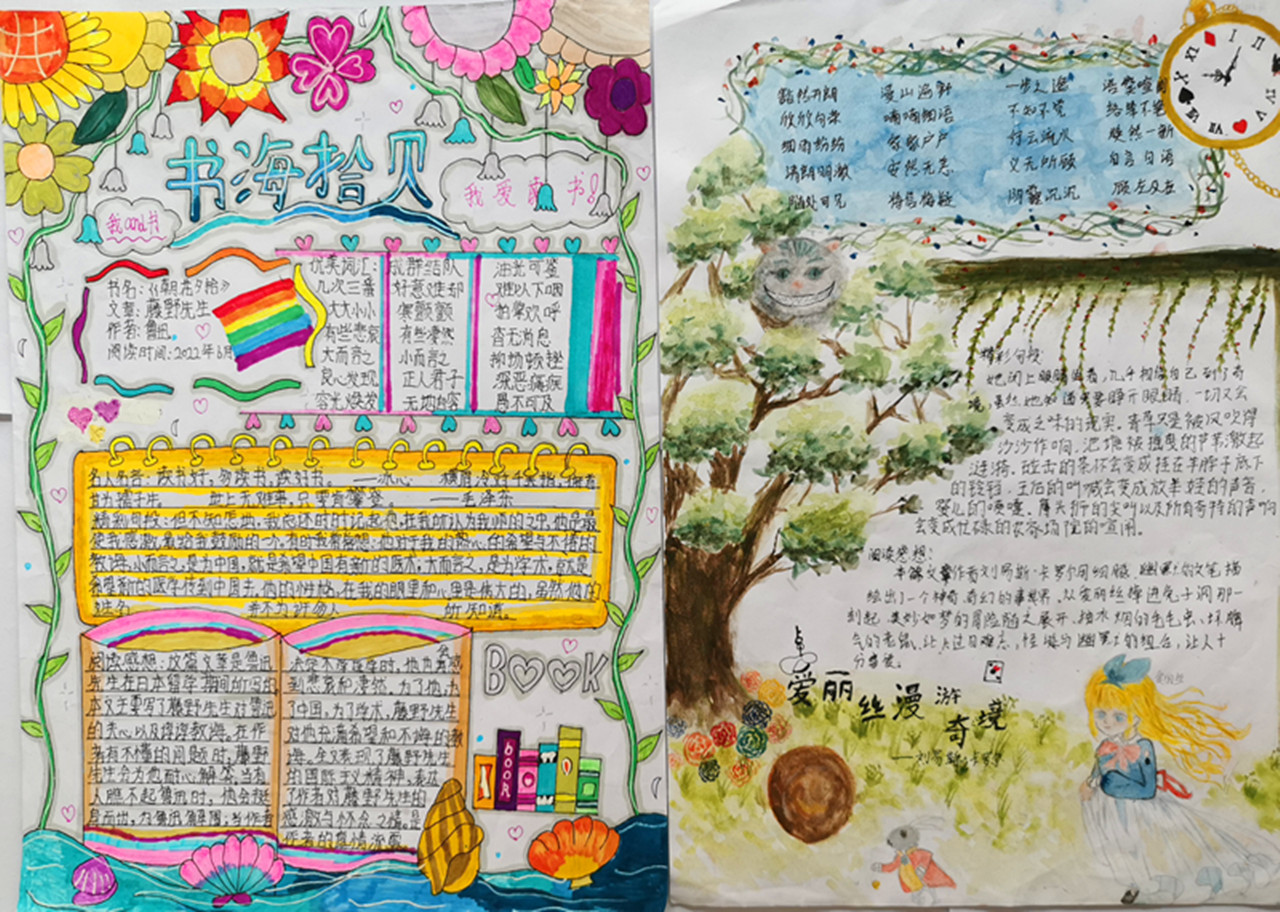 书海拾贝
我爱读书!
我and书
书名:《朝花夕拾》
文章:藤野先生
作者:鲁迅
阅读时间:2022年6月
优美词汇:
几次三番
大大小小
有些悲哀
大而言之
良心发现
容光焕发
成群结队
好意难却
寒颤颤
有些凄然
小而言之
正人君子
无地自容
油光可鉴
难以下咽
拍掌欢呼
杳无消息
抑扬顿挫
深恶痛疾
愚不可及
名人名言:读书好,多读书,读好书。——冰心 横眉冷对千夫指,俯首
甘为孺子牛 世上无难事,只要肯攀登 ——毛泽东
精彩句段:但不知怎地,我总还时时记起他,在我所认为我师的之中,他是最
使我感激,给我鼓励的一个。有时我常常想:他对于我的热心的希望,不倦的
教诲,小而言之,是为中国,就是希望中国有新的医学;大而言之,是为学术,就是
希望新的医学传到中国去。他的性格,在我的眼里和心里是伟大的,虽然他的
姓名 并不为许多人 所知道。
阅读感想:这篇文章是鲁迅
先生在日本留学期间所写的
本文主要写了藤野先生对鲁迅
的关心以及谆谆教诲。在作
者有不懂的问题时,藤野
先生会为他耐心解答,当有
人瞧不起鲁迅时,他会挺
身而出,为鲁迅解围,当作者
决定不学医学时,他也会感
到悲哀和凄然。为了他,为
了中国,为了学术,藤野先生
对他充满希望和不悔的教
诲。全文表现了藤野先生
的国际主义精神,表达
了作者对藤野先生的
感激与怀念之情。是
作者的真情流露
BOOK
book
豁然开朗 漫山遍野 一步之遥 语塞喧闹
欣欣向荣 喃喃细语 不知不觉 络绎不绝
细雨纷纷 家家户户 行云流水 焕然一新
清朗明澈 安然无恙 义无所顾 自言自语
随处可见 雾霾沉沉 顾左及右
精彩句段
她闭上眼睛坐着,几乎相信自己到了奇
境,虽然她知道只要睁开眼睛,一切又会
变成乏味的现实。青草只是被风吹得
沙沙作响,池塘被摇曳的芦苇激起
涟漪。碰击的茶杯会变成挂在羊脖子底下
的铃铛,王后的叫喊会变成放羊娃的声音,
婴儿的喷嚏、鹰头狮的尖叫以及所有奇特的声响
会变成忙碌的农家场院的喧闹。
阅读感想:
本篇文章作者刘易斯·卡罗尔用细腻、幽默的文笔描
绘出了一个神奇、奇幻的童世界。从爱丽丝摔进兔子洞那一
刻起,美妙如梦的冒险随之展开,抽水烟的毛毛虫、坏脾
气的老鼠,让人过目难忘,怪诞与幽默的组合,让人十
分喜爱。
爱丽丝漫游奇境
——刘易斯·卡罗尔